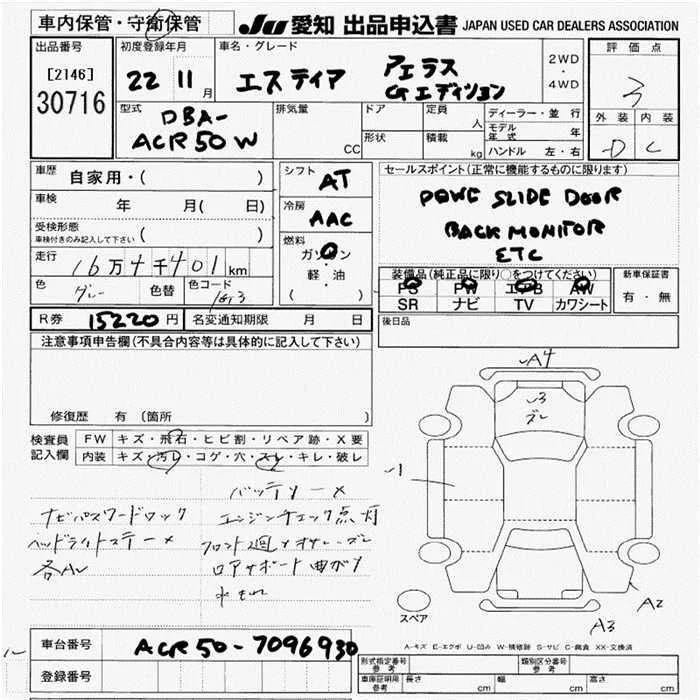 車内保管・守衛保管
JU 愛知 出品申込書 JAPAN USED CAR DEALERS ASSOCIATION
出品番号
[2146]
30716
初度登録年月
22 11月
車名・グレード
エスティマ アエラス
Gエディション
2WD
・
4WD
評価点
3
外装 内装
D C
型式
DBA-
ACR50W
排気量
CC
ドア
形状
定員
人
積載
kg
ディーラー・並行
モデル年式 年
ハンドル 左・右
車歴
自家用・( )
車検
年 月( 日)
受検形態
車検付きのみ記入して下さい
走行
16万4千401km
色
グレー
色替
色コード
シフト
AT
冷房
AAC
燃料
ガソリン
軽・油
( )
セールスポイント(正常に機能するものに限ります)
POWE SLIDE DOOR
BACK MONITOR
ETC
装備品(純正品に限り○をつけてください)
PS PW エアB AW
SR ナビ TV カワシート
新車保証書
有・無
後日品
R券 15220円 名変通知期限 月 日
注意事項申告欄(不具合内容等は具体的に記入して下さい)
修復歴 有(箇所 )
検査員
記入欄
FW キズ・飛石・ヒビ割・リペア跡・X要
内装 キズ・汚レ・コゲ・穴・スレ・キレ・破レ
バッテリー×
ナビパスワードロック
エンジンチェック点灯
ヘッドライトステー×
ロアサポート曲ガリ
A4
3
ズレ
1
A2
A3
スペア
A-キズ E-エクボ U-凹み W-補修跡 S-サビ C-腐食 XX-交換済
車台番号
ACR50-7096930
登録番号
形式指定番号
参考
類別区分番号
参考
車庫証明用
参考
長さ cm
幅 cm
高さ cm